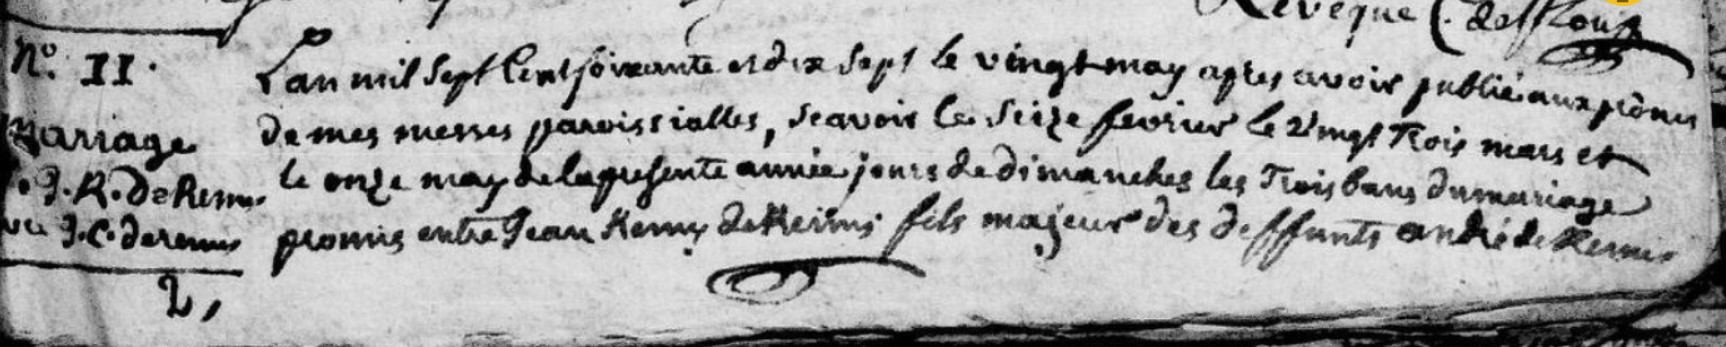 Reveque C. de
N.o II.
Mariage
J. R. De Remi
J. C. deremi
2,
Lan mil sept Cent soixante et dix sept le vingt may apres avoir publié aux prônes
de mes messes paroissialles, scavoir le seize fevrier le vingt Trois mars et
le onze may de la presente année jours de dimanches les Trois bans du mariage
promis entre Jean Remy de Remi fils majeur des deffunts andré de Remi